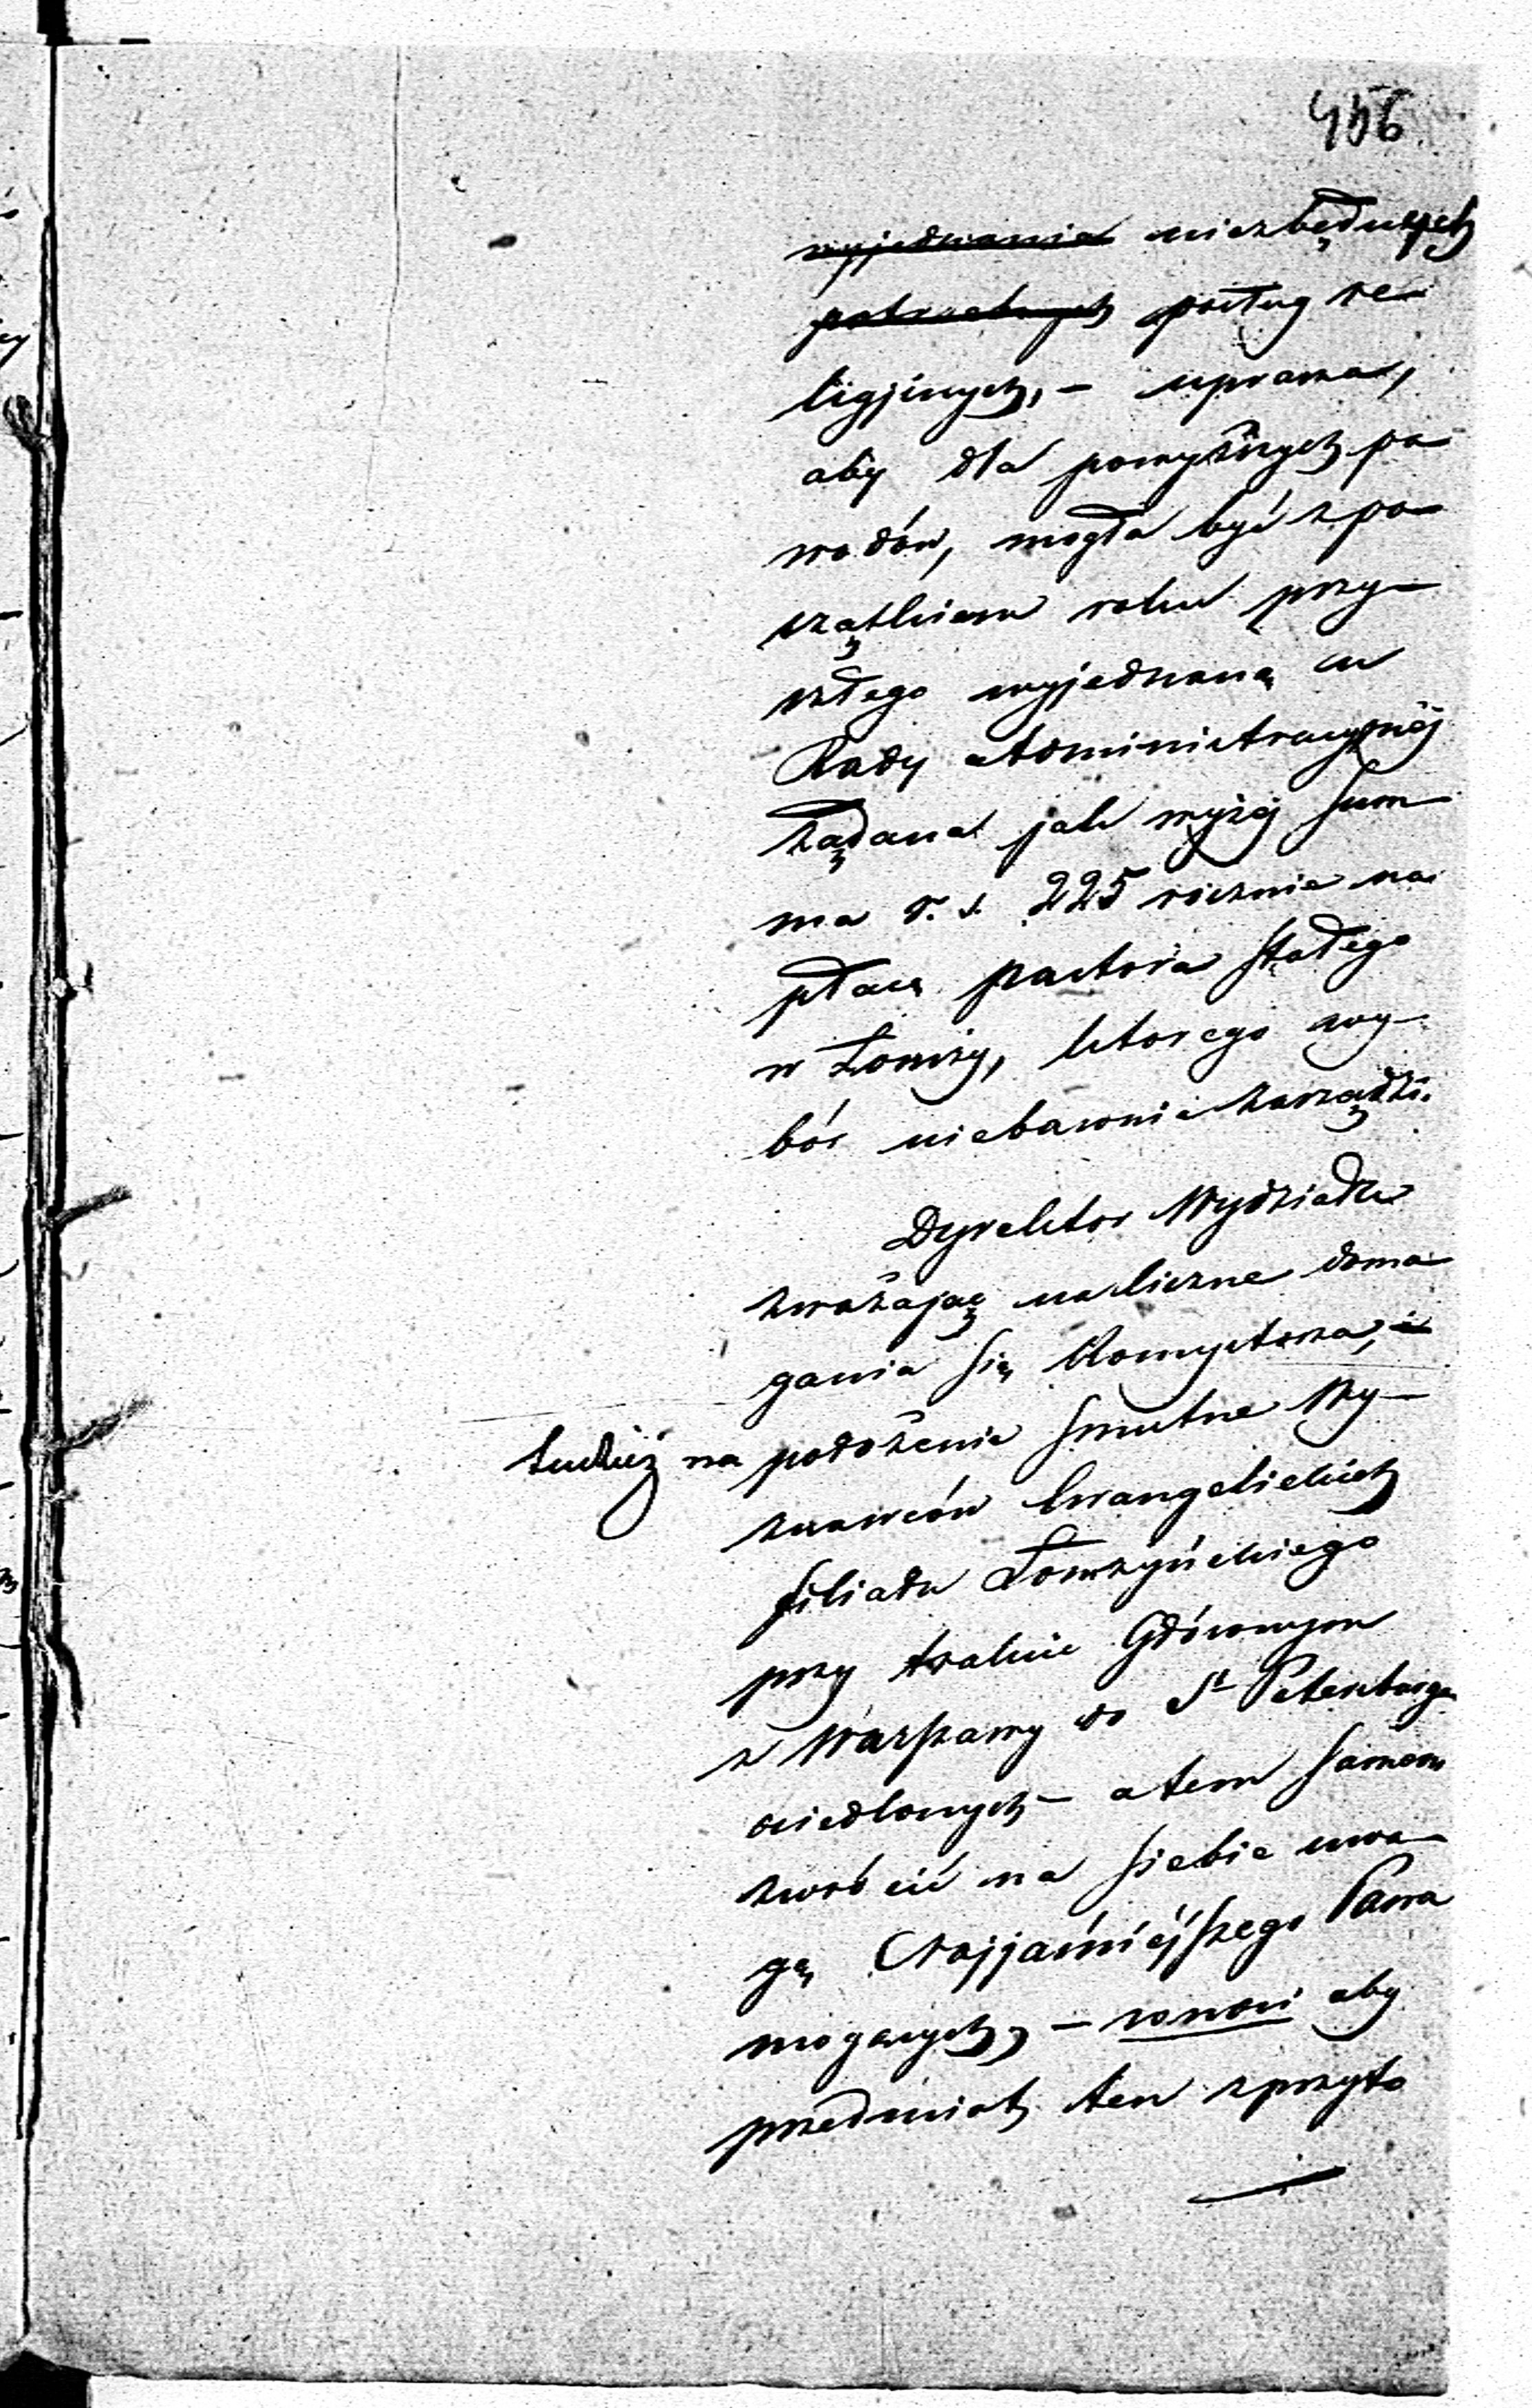 456
wyjednania niezbędnych
potrzebnych posług re
ligijnych, – uprasza,
aby dla powyższych po
wodów, mogła być z po
czątkiem roku przy-
szłego wyjednaną u
Rady Administracyjnéj
żądana jak wyżej sum
ma r. s. 225 rocznie na
płacę pastora stałego
w Łomży, którego wy-
bór niebawnie zarządzi.
Dyrektor Wydziału
zważając na liczne doma
gania się Konsystorza, i
tudzież na położenie smutne Wy-
znawców Ewangelickich
filiału Łomżyńskiego
przy trakcie Głównym
z Warszawy do St Petersburga
osiedlonych – a tem samem
zwrócić na siebie uwa
gę Najjaśniéjszego Pana
mogących, – wnosi aby
przedmiot ten z przyto